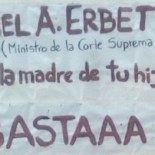 EL A. ERBET
(Ministro de la Corle Suprema
la madre de tu hij
BASTAAA